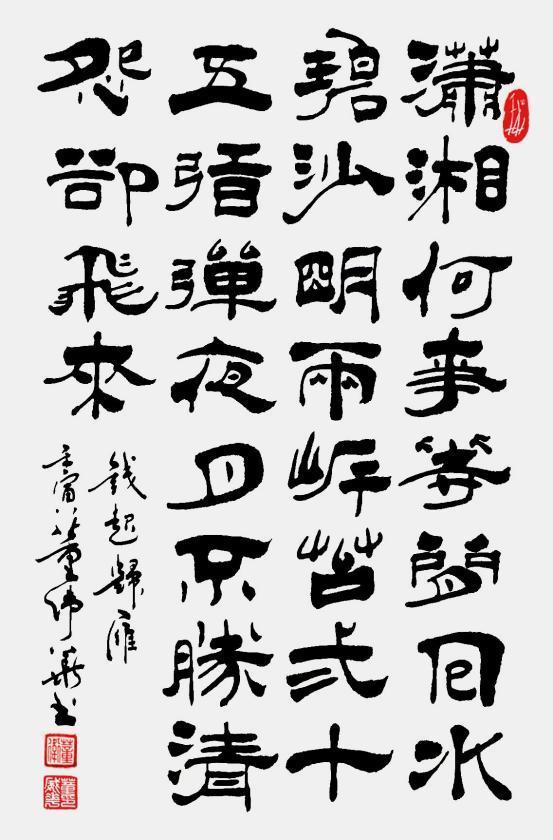 瀟湘何事等閒囘水
碧沙朙兩岸苔弍十
五弦彈夜月不勝清
怨卻飛來
錢起歸雁
壬寅董偉華書